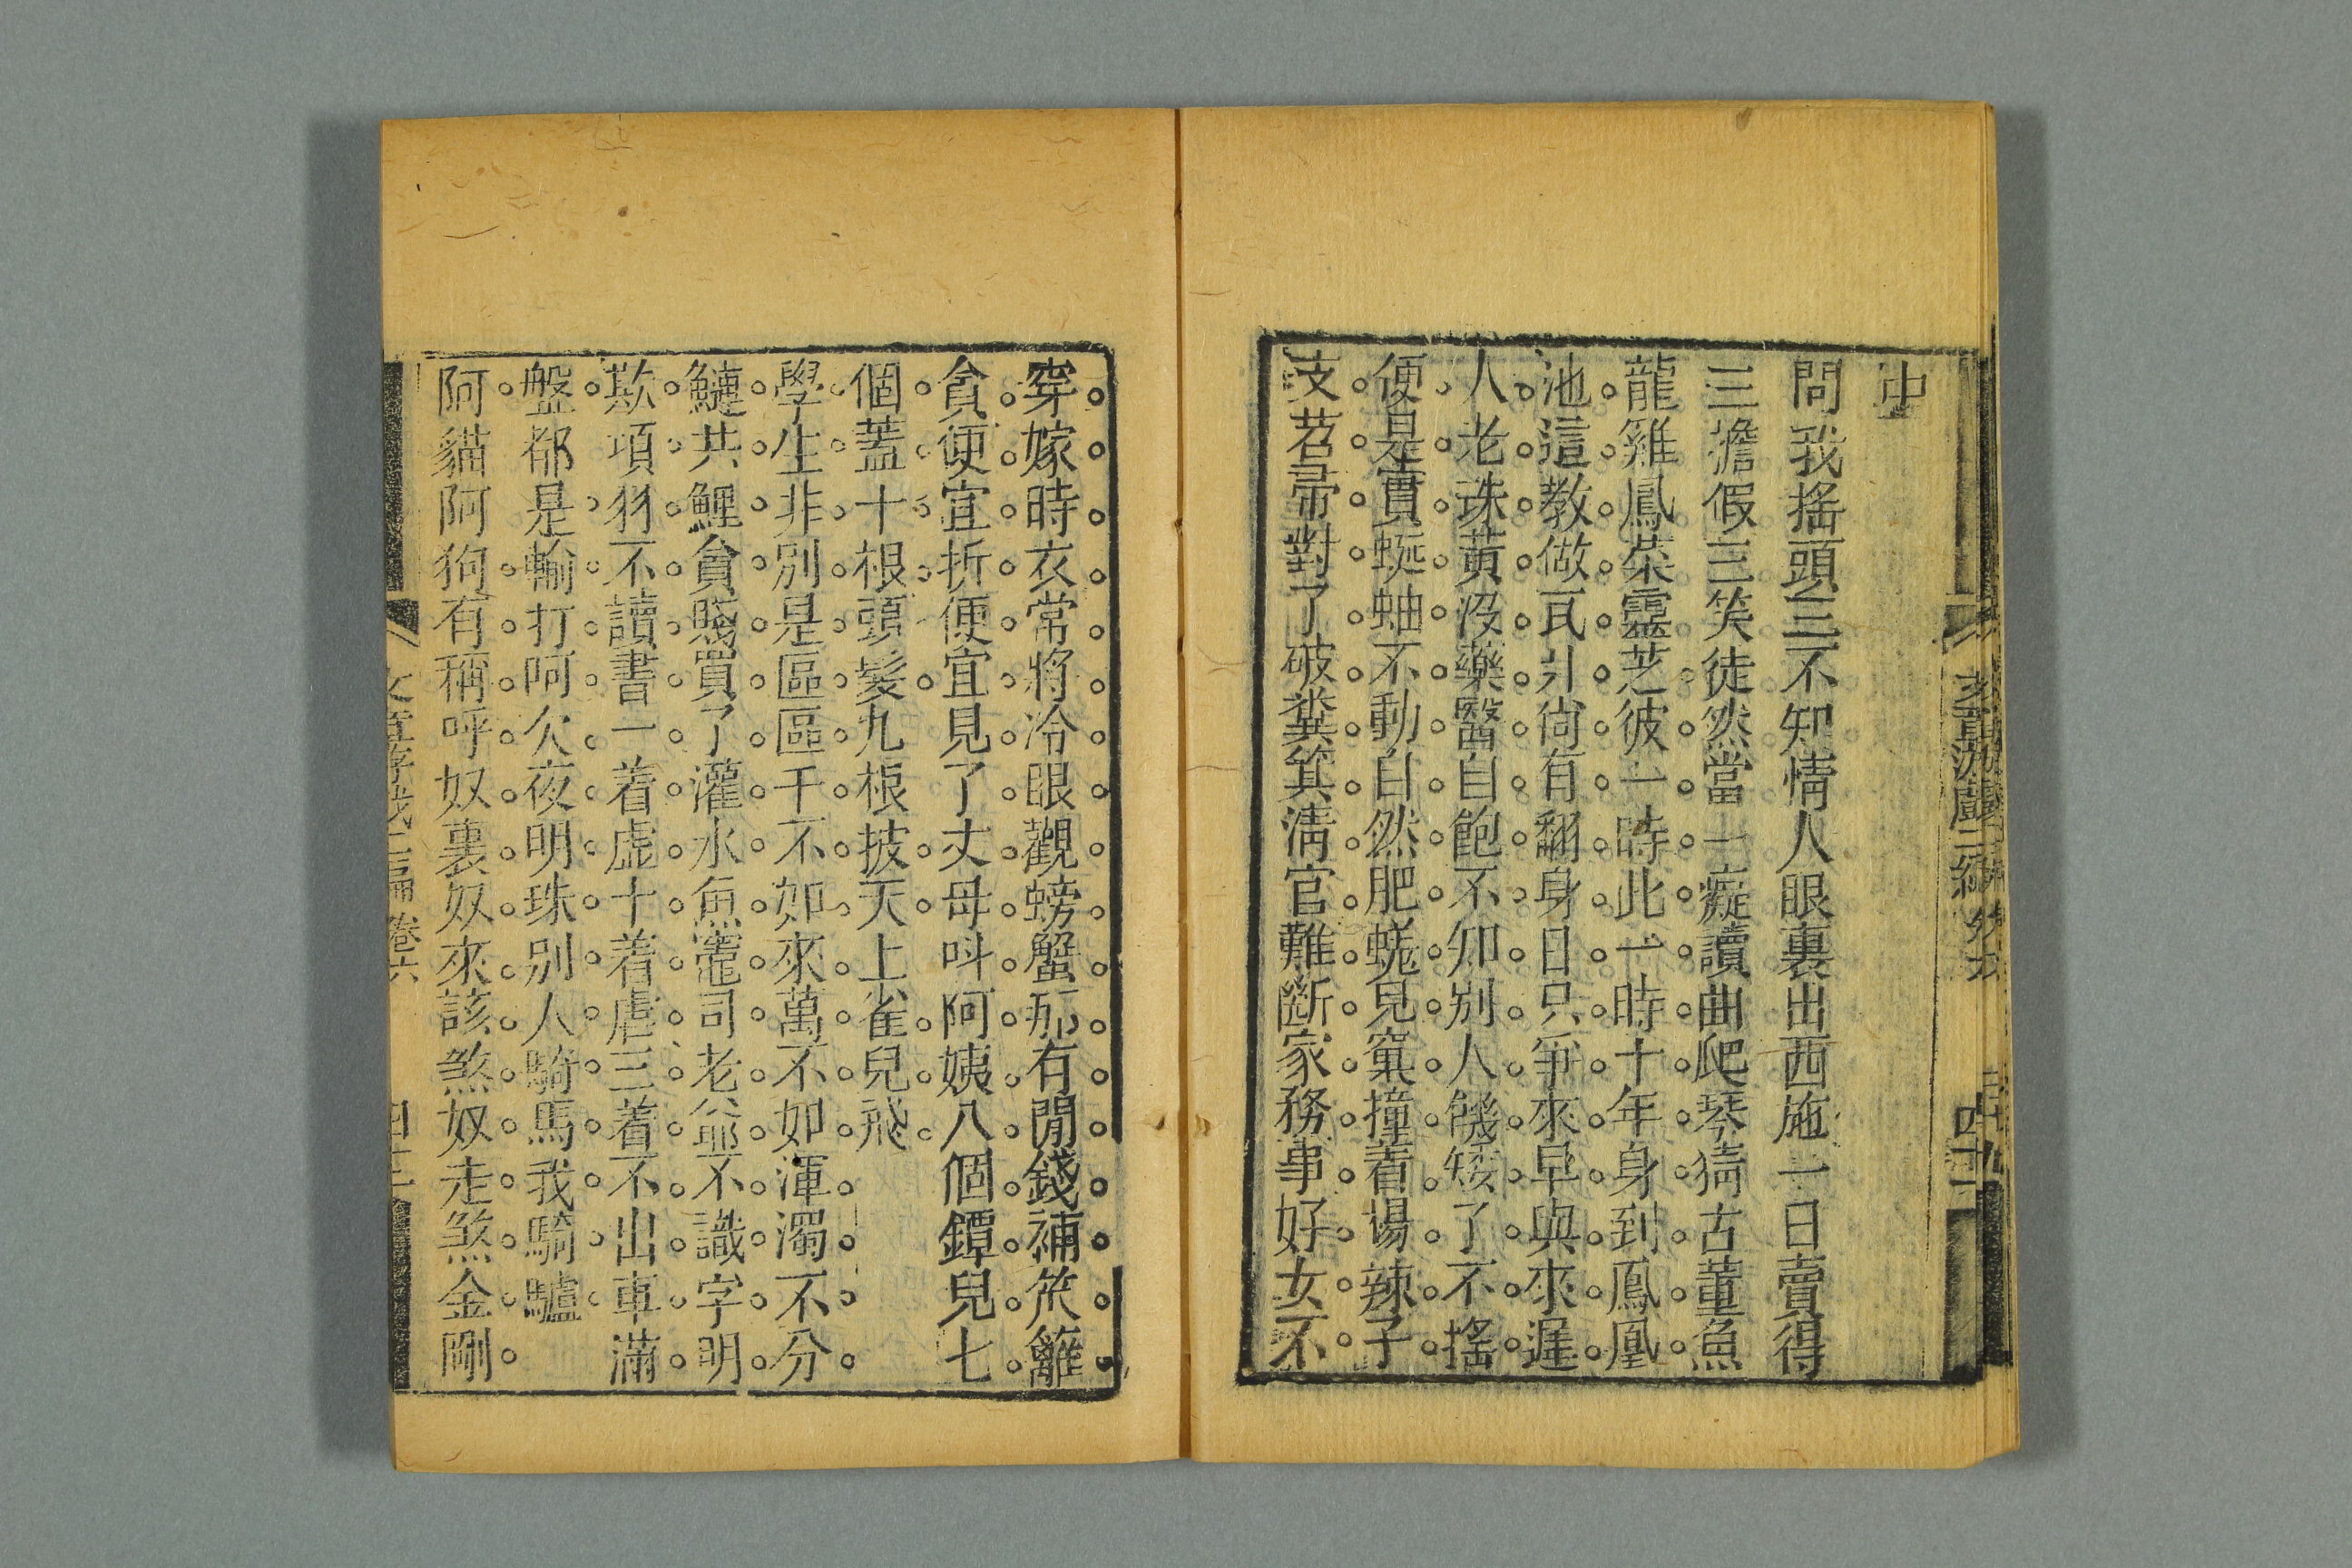 中
問我搖頭三不知情人眼裏出西施一日賣得
三擔假三笑徒然當一癡讀曲爬琴猜古董魚
龍雞鳳菜靈芝彼一時此一時十年身到鳳凰
池這教做瓦爿尙有翻身日只爭來早與來遲
人老珠黃沒藥醫自飽不知別人饑矮了不搖
便是賣蜒蚰不動自然肥蟻兒窠撞着場辣子
支苕帚對了破糞箕淸官難斷家務事好女不
穿嫁時衣常將冷眼觀螃蟹那有閒錢補笊籬
貪便宜折便宜見了丈母呌阿姨八個鐔兒七
個蓋十根頭髮九根披天上雀兒飛
學生非別是區區千不如來萬不如渾濁不分
鰱共鯉貪賤買了灌水魚竈司老爺不識字明
欺項羽不讀書一着虛十着虛三着不出車滿
盤都是輸打呵欠夜明珠別人騎馬我騎驢
阿貓阿狗有稱呼奴裏奴來該煞奴走煞金剛
文章游戲二編卷六